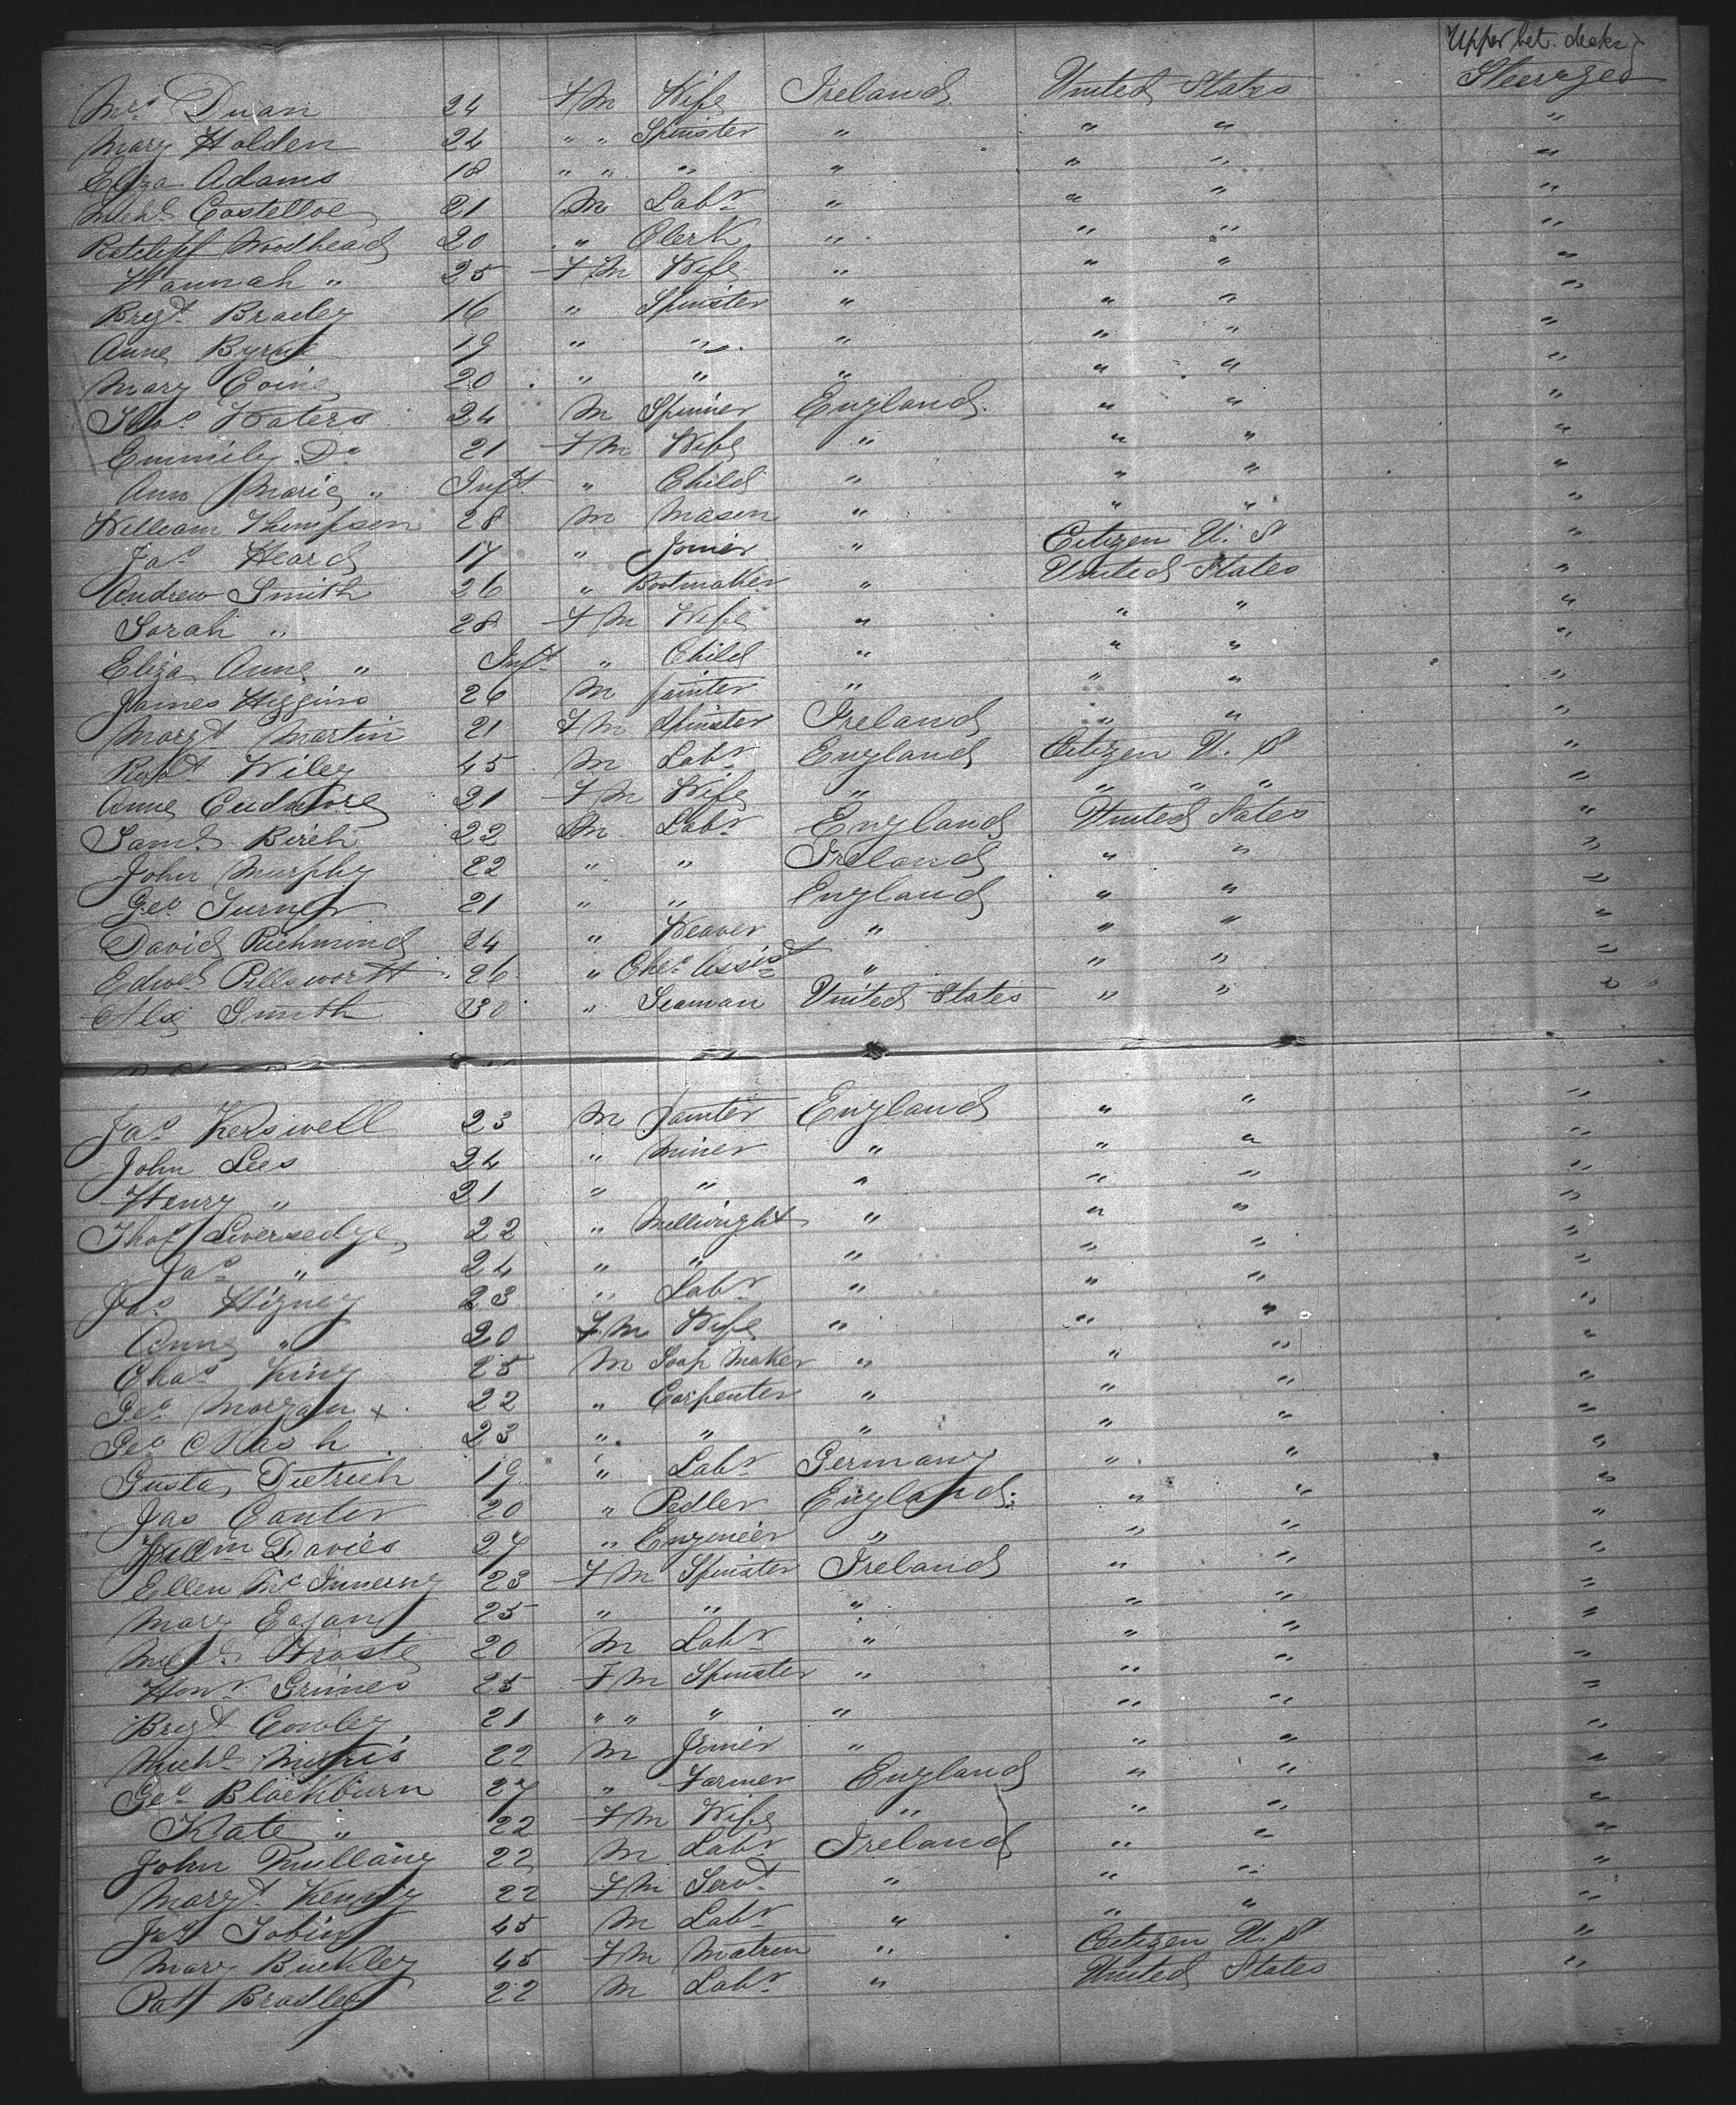 Upper bet. decks
Mrs Duan 24 Fm Wife Ireland United States Steerage
Mary Holden 24 " " Spinster " " " "
Eliza Adams 18 " " " " " " "
Michl Costelloe 21 M Labr " " " "
Ratcliff Woodhead 20 " Clerk " " " "
Hannah " 25 Fm Wife " " " "
Bregt Bradey 16 " Spinster " " " "
Anne Byrne 19 " " " " " "
Mary Coine 20 " " " " " "
Thos Waters 24 M Spinner England " " "
Emmily Do 21 Fm Wife " " " "
Ann Marie " Inft " Child " " " "
William Thompson 28 M Mason " " " "
Jas Heard 17 " Joiner " Citizen U. S "
Andrew Smith 26 " Bootmaker " United States "
Sarah " 28 Fm Wife " " " "
Eliza Anne " Inft " Child " " " "
James Higgins 26 M painter " " " "
Margt Martin 21 Fm Spinster Ireland " " "
Robt Wiley 45 M Labr England Citizen U. S "
Anne Cudmore 21 Fm Wife " " " " "
Saml Birch 22 M Labr England United States "
John Murphy 22 " " Ireland " " "
Geo Turner 21 " " England " " "
David Richmond 24 " Weaver " " " "
Edwd Pillsworth 26 " Chec Assist " " " "
Alex Smith 30 " Seaman United States " " "
Jas Kerswell 23 M Painter England " " "
John Lees 24 " Miner " " " "
Henry " 21 " " " " " "
Thos Liversedge 22 " Millwright " " " "
Jas " 24 " " " " " "
Jas Higney 23 " Labr " " " "
Anne " 20 Fm Wife " " " "
Chas King 25 M Soap Maker " " " "
Geo Morgan x 22 " Carpenter " " " "
Geo Nash 23 " " " " " "
Gusta Dietrich 19 " Labr Germany " " "
Jas Canter 20 " Pedler England " " "
Willm Davies 27 " Engineer " " " "
Ellen McInnerny 23 Fm Spinster Ireland " " "
Mary Eagan 25 " " " " " "
Michl 20 M Labr " " " "
Honr Grimes 25 Fm Spinster " " " "
Bregt Cowley 21 " " " " " " "
Michl Morris 22 M Joiner " " " "
Geo Blackburn 27 " Farmer England " " "
Kate " 22 Fm Wife " " " "
John Mullany 22 M Labr Ireland " " "
Margt Kenny 22 Fm Servt " " " "
Jas Tobin 45 M Labr " " " "
Mary Buckley 45 Fm Matron " Citizen U. S "
Pat Bradley 22 M Labr " United States "